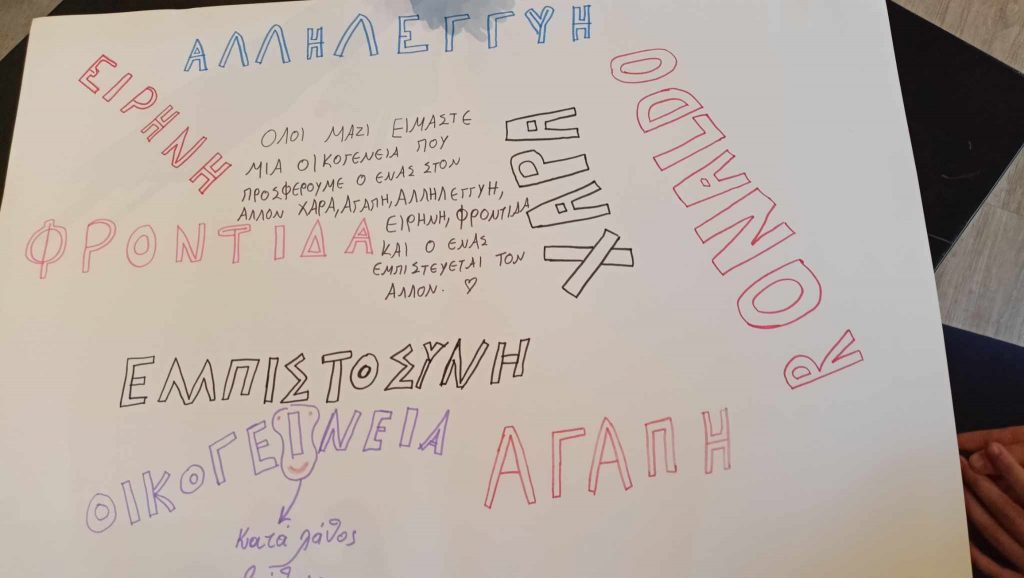 ΑΛΛΗΛΕΓΓΥΗ
ΕΙΡΗΝΗ
RONALDO
ΟΛΟΙ ΜΑΖΙ ΕΙΜΑΣΤΕ
ΜΙΑ ΟΙΚΟΓΕΝΕΙΑ ΠΟΥ
ΠΡΟΣΦΕΡΟΥΜΕ Ο ΕΝΑΣ ΣΤΟΝ
ΑΛΛΟΝ ΧΑΡΑ, ΑΓΑΠΗ, ΑΛΛΗΛΕΓΓΥΗ,
ΕΙΡΗΝΗ, ΦΡΟΝΤΙΔΑ
ΚΑΙ Ο ΕΝΑΣ
ΕΜΠΙΣΤΕΥΕΤΑΙ ΤΟΝ
ΑΛΛΟΝ. ♡
ΧΑΡΑ
ΦΡΟΝΤΙΔΑ
ΕΜΠΙΣΤΟΣΥΝΗ
ΟΙΚΟΓΕΙΝΕΙΑ
ΑΓΑΠΗ
Κατά λάθος